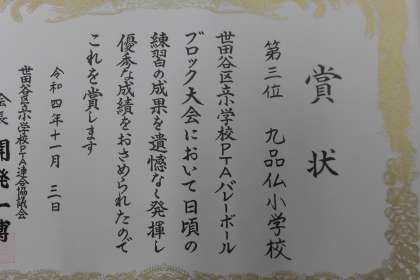 賞状
第三位 九品仏小学校
世田谷区立小学校PTAバレーボール
ブロック大会において日頃の
練習の成果を遺憾なく発揮し
優秀な成績をおさめられたので
これを賞します
令和四年十一月三日
世田谷区立小学校PTA連合協議会
会長 開発一博